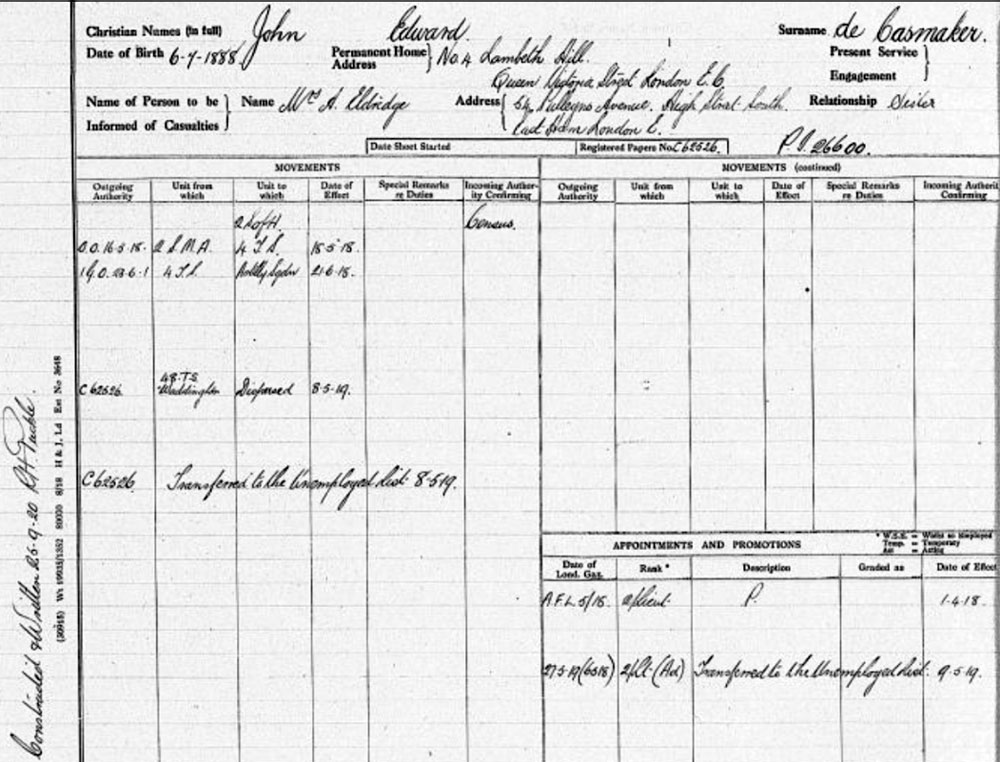 Christian Names (in full) John Edward Surname de Casmaker.
Date of Birth 6-7-1888 Permanent Home Address No. 4 Lambeth Hill. Present Service
Queen Victoria Street London E.C. Engagement
Name of Person to be Informed of Casualties Name Mrs A. Eldridge Address 54 Avenue. High Street South. Relationship Sister
East Ham London E.
Date Sheet Started Registered Papers No. C62526. P.I. 26600.
MOVEMENTS
Outgoing Authority Unit from which Unit to which Date of Effect Special Remarks re Duties Incoming Authority Confirming
2 S of H. Census.
O.O. 16-5-18. 2 S.M.A. 4 T.S. 18-5-18.
4 T.S. 21-6-18.
C 62526. 48.T.S. Waddington Dispersed 8-5-19.
C62526. Transferred to the Unemployed List 8-5-19.
MOVEMENTS (continued)
Outgoing Authority Unit from which Unit to which Date of Effect Special Remarks re Duties Incoming Authori Confirming
APPOINTMENTS AND PROMOTIONS
* W.S.E. = Whilst so Employed
Temp. = Temporary
Act = Acting
Date of Lond. Gaz. Rank * Description Graded as Date of Effect
A.F.L. 5/18. 2/Lieut. P. 1-4-18.
27-5-19 (6518) 2/Lt (Ad) Transferred to the Unemployed List. 9-5-19.
Constructed & Written 25-9-20
(30915) Wt 19935/1352 80000 8/18 H & J, Ld Est No 3648